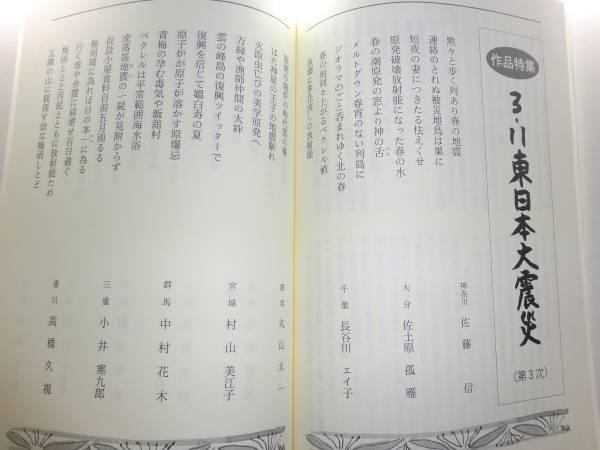 作品特集
3・11東日本大震災
(第3次)
黙々と歩く列あり春の地震
連絡のとれぬ被災地鳥は巣に
神奈川 佐藤 信
短夜の妻につきたる怯えくせ
原発破壊放射能になった春の水
春の潮原発の窓より神の舌
大分 佐土原 孤雁
メルトダウン春宵のない列島に
ジオラマのごと呑まれゆく北の春
春の雨刻々上がるベクレル値
千葉 長谷川 エイ子
はた神屋の王子の地震馴れ
火取虫亡びの美学原発へ
群馬 丸山 太一
万緑や漁師仲間の太絆
雲の峰島の復興ツイッターで
復興を信じて嫗白寿の夏
宮城 村山 美江子
原子炉が原子炉溶かす原爆忌
青梅の孕む毒気や飯舘村
ベクレルは平常範囲海水浴
群馬 中村 花木
虎落笛地震の一屍が見附からず
仮設小屋食料自前五月雨るる
梅雨晴に為れば日の本一に為る
三重 小井 寒九郎
行く春や余震に肩寄せ百日過ぐ
梅雨しとど汚泥とともに放射能ため
瓦礫の山に親探す幼な梅雨しとど
香川 高橋 久視